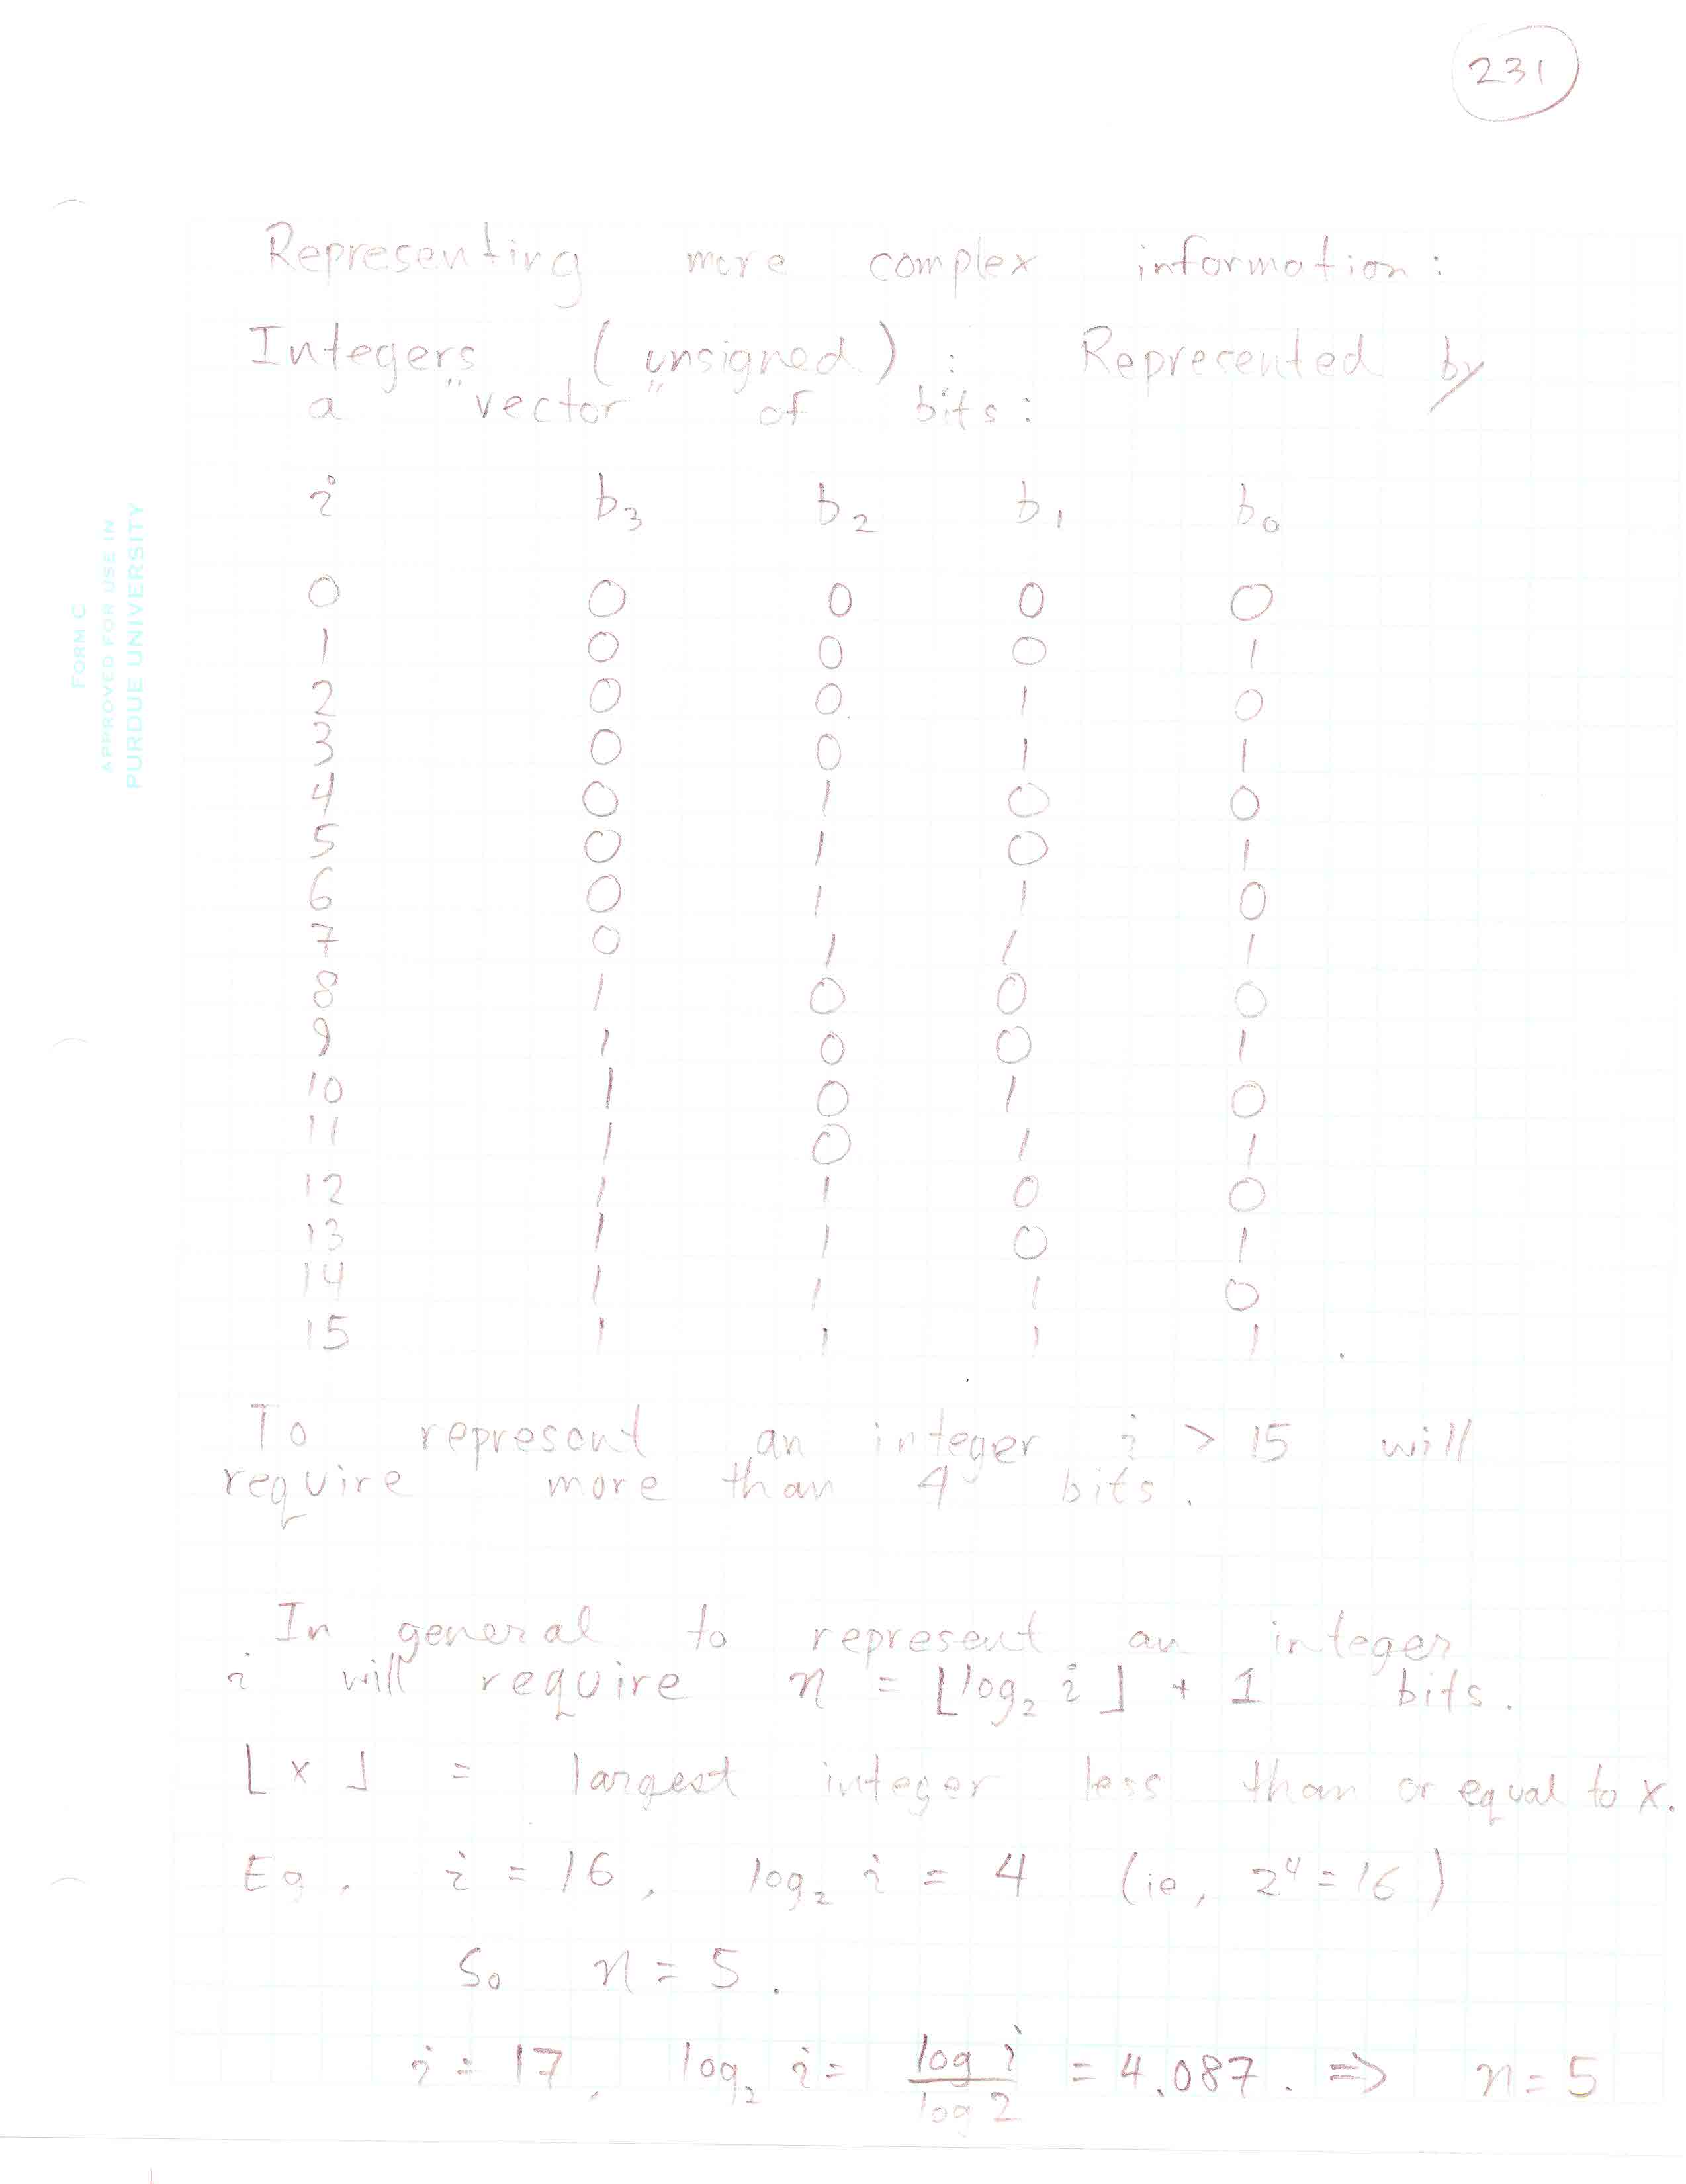 231
Representing more complex information:
Integers (unsigned): Represented by
a "vector" of bits:
i b₃ b₂ b₁ b₀
0 0 0 0 0
1 0 0 0 1
2 0 0 1 0
3 0 0 1 1
4 0 1 0 0
5 0 1 0 1
6 0 1 1 0
7 0 1 1 1
8 1 0 0 0
9 1 0 0 1
10 1 0 1 0
11 1 0 1 1
12 1 1 0 0
13 1 1 0 1
14 1 1 1 0
15 1 1 1 1
To represent an integer i > 15 will
require more than 4 bits.
In general to represent an integer
i will require n = ⌊log₂ i⌋ + 1 bits.
⌊x⌋ = largest integer less than or equal to x.
Eg. i = 16, log₂ i = 4 (ie, 2⁴ = 16)
So n = 5.
i = 17, log₂ i = log i / log 2 = 4.087. ⇒ n = 5
FORM C
APPROVED FOR USE IN
PURDUE UNIVERSITY